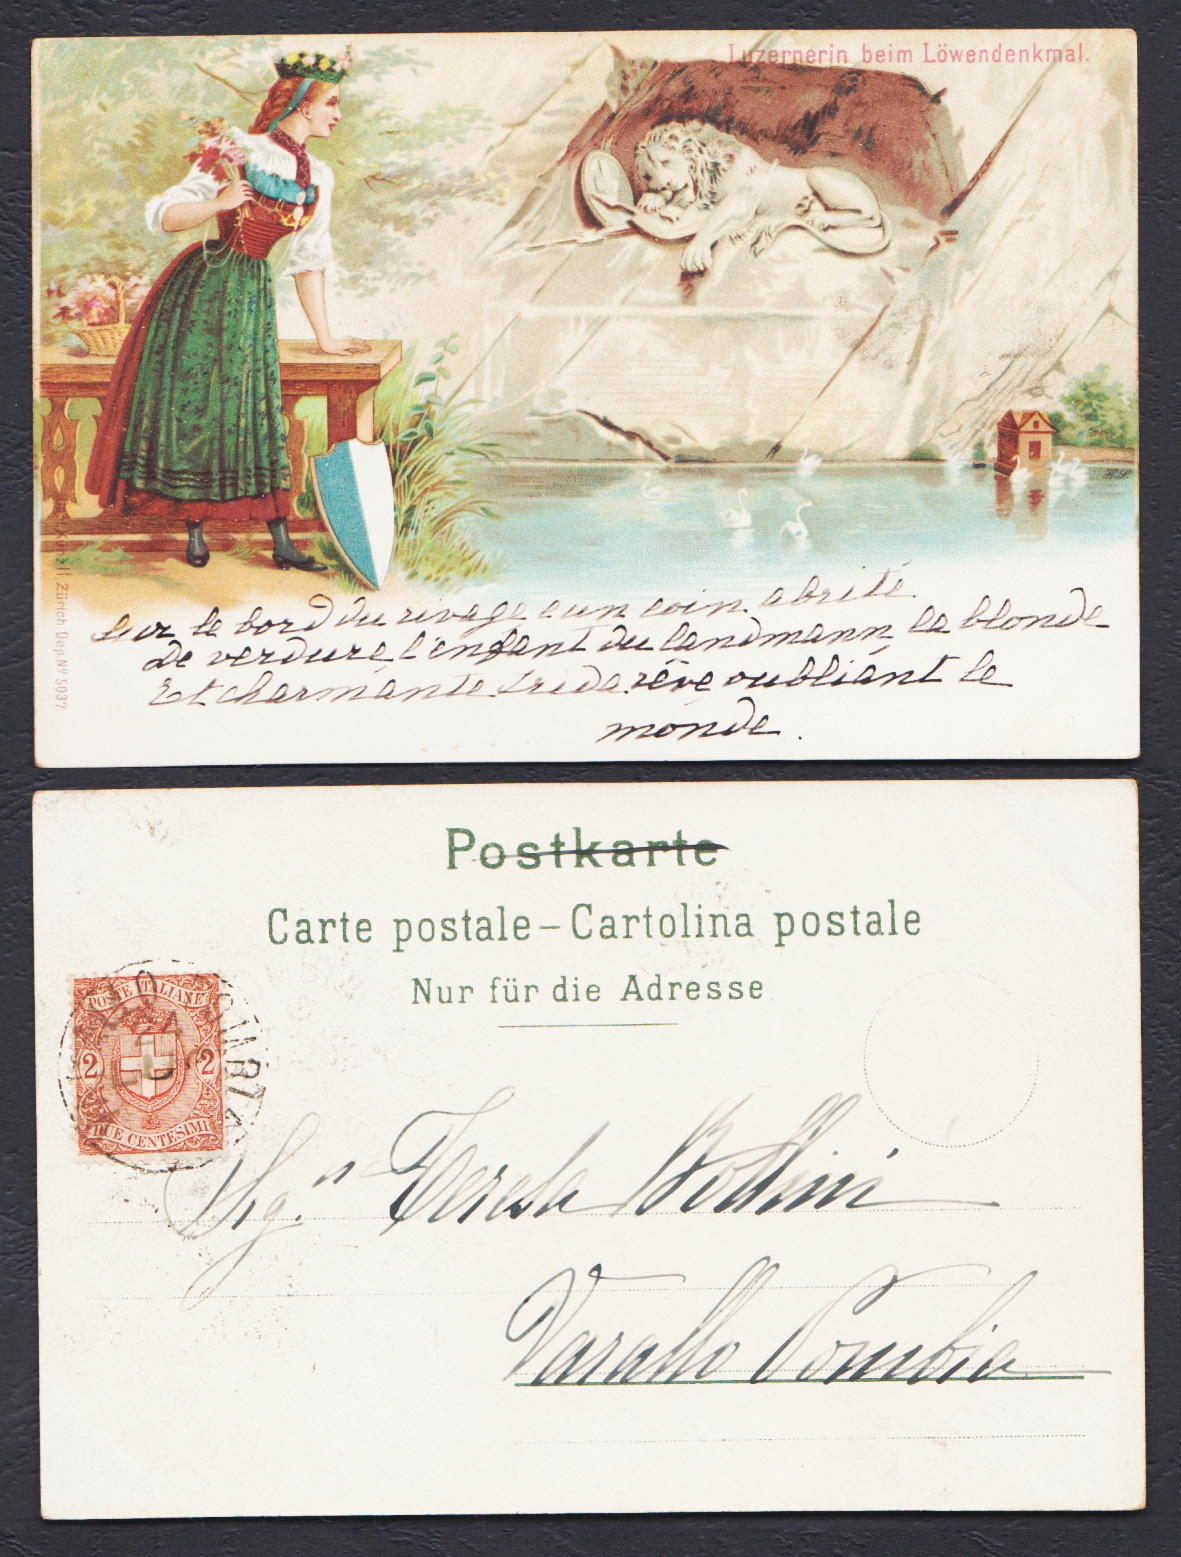 Luzernerin beim Löwendenkmal.
Künzli Zürich Dep. Nº 5037.
Sur le bord du rivage e un coin abrité
De verdure, l'enfant du landmann, la blonde
Et charmante Frida rêve oubliant le
monde.
Postkarte
Carte postale – Cartolina postale
Nur für die Adresse
POSTE ITALIANE
2 2
DUE CENTESIMI
Sig.a Teresa Bollini
Varallo Pombia